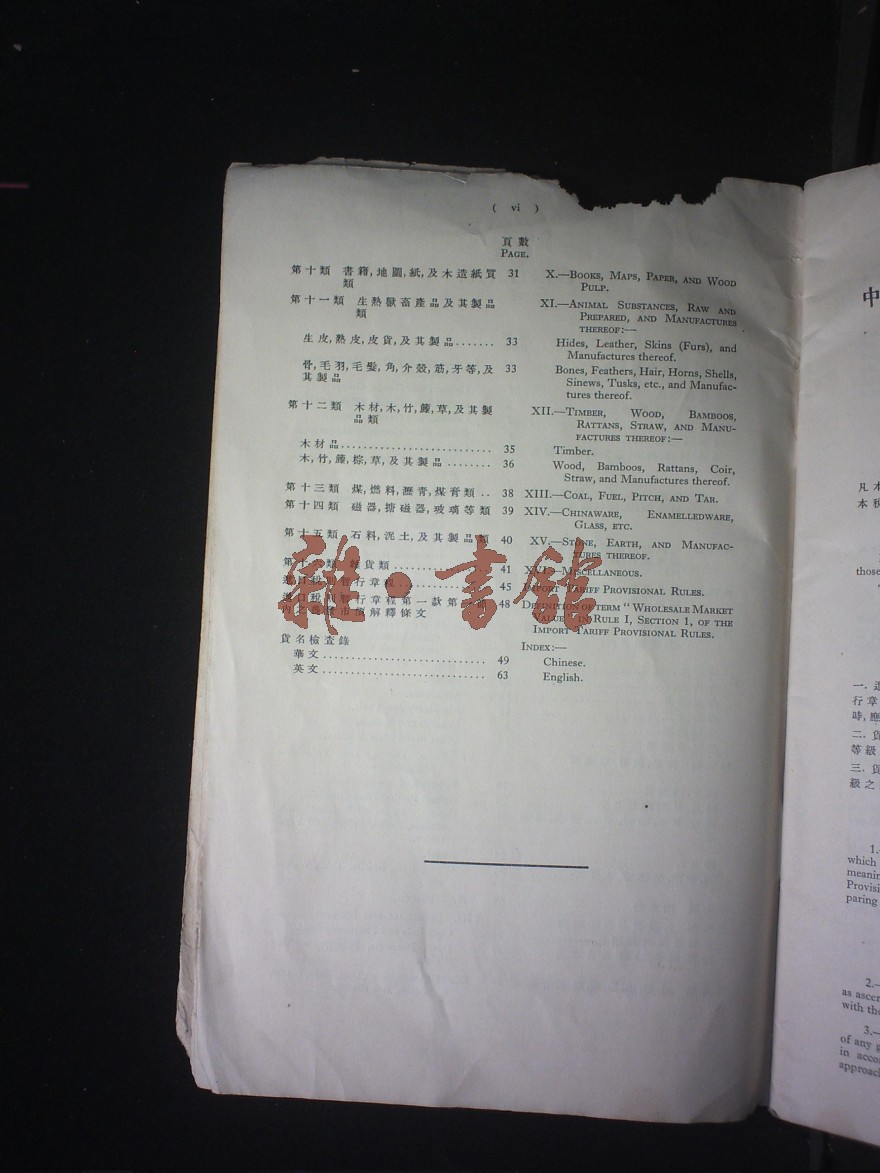 ( vi )
頁數
PAGE.
第十類 書籍,地圖,紙,及木造紙質 31 X.—BOOKS, MAPS, PAPER, AND WOOD
類 PULP.
第十一類 生熟獸畜產品及其製品 XI.—ANIMAL SUBSTANCES, RAW AND
類 PREPARED, AND MANUFACTURES
THEREOF:—
生皮,熟皮,皮貨,及其製品....... 33 Hides, Leather, Skins (Furs), and
Manufactures thereof.
骨,毛羽,毛髮,角,介殼,筋,牙等,及 33 Bones, Feathers, Hair, Horns, Shells,
其製品 Sinews, Tusks, etc., and Manufac-
tures thereof.
第十二類 木材,木,竹,籐,草,及其製 XII.—TIMBER, WOOD, BAMBOOS,
品類 RATTANS, STRAW, AND MANU-
FACTURES THEREOF:—
木材品........................... 35 Timber.
木,竹,籐,棕,草,及其製品........ 36 Wood, Bamboos, Rattans, Coir,
Straw, and Manufactures thereof.
第十三類 煤,燃料,瀝青,煤膏類.. 38 XIII.—COAL, FUEL, PITCH, AND TAR.
第十四類 磁器,搪磁器,玻璃等類 39 XIV.—CHINAWARE, ENAMELLEDWARE,
GLASS, ETC.
第十五類 石料,泥土,及其製品類 40 XV.—STONE, EARTH, AND MANUFAC-
TURES THEREOF.
第十六類 雜貨類 41 XVI.—MISCELLANEOUS.
進口稅則暫行章程 45 IMPORT TARIFF PROVISIONAL RULES.
進口稅則暫行章程第一款第 48 DEFINITION OF TERM "WHOLESALE MARKET
內之 市價解釋條文 VALUE" IN RULE I, SECTION 1, OF THE
IMPORT TARIFF PROVISIONAL RULES.
貨名檢查錄 INDEX:—
華文............................. 49 Chinese.
英文............................. 63 English.
雜·書館
中
凡本
本稅
those
一.
行章
時,應
二.貨
等級
三.貨
級之
1.
which
meanin
Provisi
paring
2.—
as ascer
with the
3.—
of any g
in acco
approach